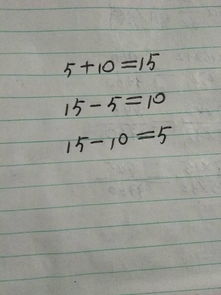 5+10=15
15-5=10
15-10=5